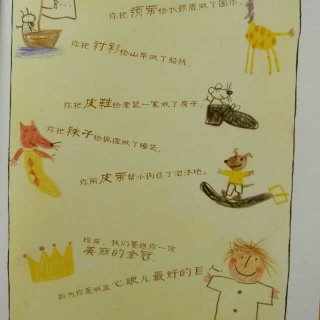 你把领带给长颈鹿做了围巾,
你把衬衫给山羊做了船帆,
你把皮鞋给老鼠一家做了房子,
你把袜子给狐狸做了睡袋,
你用皮带帮小狗过了沼泽地。
现在,我们要给你一顶
美丽的金冠,
因为你是城里心眼儿最好的巨